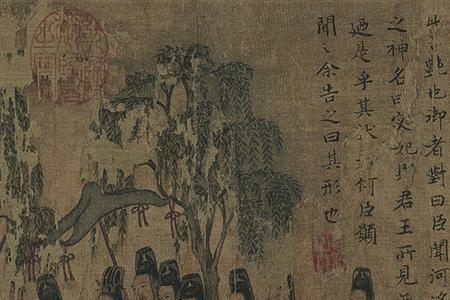 艷也御者對曰臣聞河
之神名曰宓妃則君王所見
廼是乎其狀何臣願
聞〻余告之曰其形也